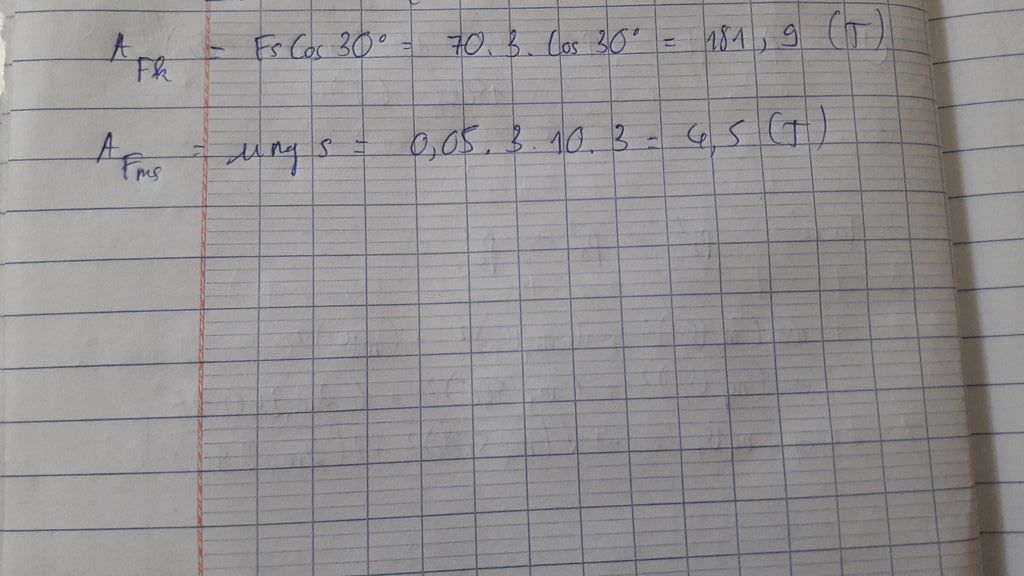 A_Fk = Fs Cos 30° = 70. 3. Cos 30° = 181,9 (J)
A_Fms = μmg s = 0,05. 3. 10. 3 = 4,5 (J)